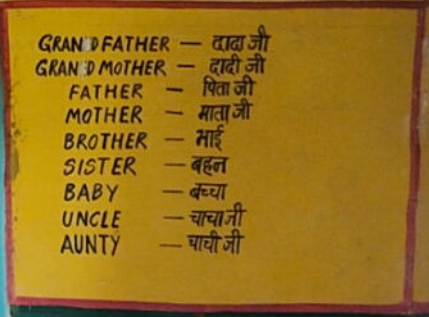 GRANDFATHER — दादा जी
GRANDMOTHER — दादी जी
FATHER — पिता जी
MOTHER — माता जी
BROTHER — भाई
SISTER — बहन
BABY — बच्चा
UNCLE — चाचा जी
AUNTY — चाची जी